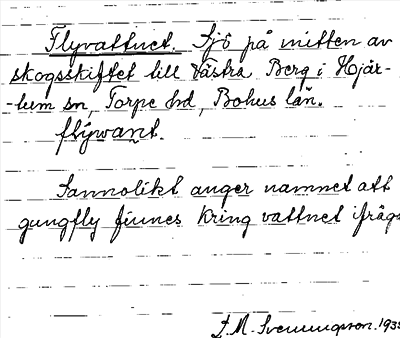 Flyvattnet. Sjö på mitten av
skogsskiftet till Västra Berg i Hjär-
-tum sn, Torpe hd, Bohus län.
flȳwant.
Sannolikt anger namnet att
gungfly finnes kring vattnet ifråga
J. M. Svenungsson. 193